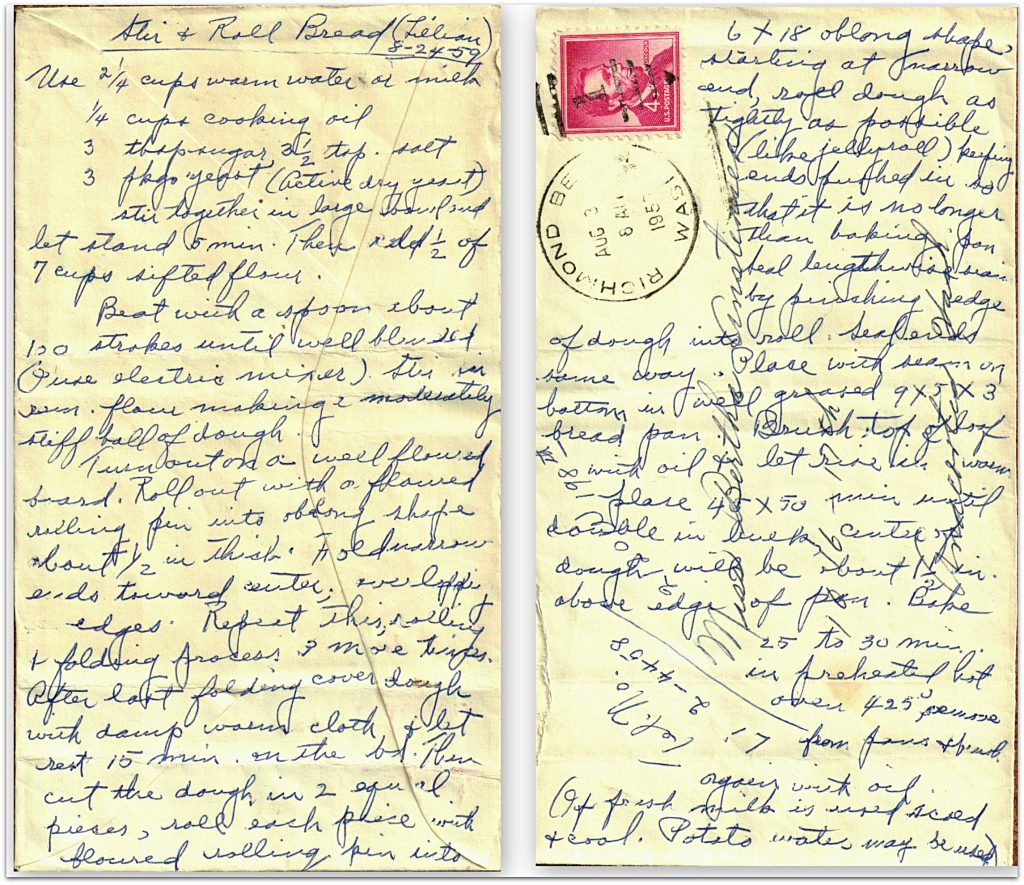 Stir & Roll Bread (Lilian)
8-24-59
Use 2 1/4 cups warm water or milk
1/4 cups cooking oil
3 tbsp sugar, 3 1/2 tsp. salt
3 pkgs yeast (Active dry yeast)
stir together in large bowl and
let stand 5 min. Then add 1/2 of
7 cups sifted flour.
Beat with a spoon about
150 strokes until well blended
(or use electric mixer) Stir in
rem. flour making a moderately
stiff ball of dough.
Turn out on a well floured
board. Roll out with a floured
rolling pin into oblong shape
about 1/2 in thick. Fold narrow
ends toward center, overlapping
edges. Repeat this rolling
& folding process 3 more times.
After last folding cover dough
with damp warm cloth & let
rest 15 min. on the bd. Then
cut the dough in 2 equal
pieces, roll each piece with
floured rolling pin into
6 X 18 oblong shape,
starting at narrow
end, roll dough as
tightly as possible
(like jelly roll) keeping
ends pushed in so
that it is no longer
than baking pan
Seal lengthwise seam
by pinching edge
of dough into roll. Seal ends
same way. Place with seam on
bottom in well greased 9 X 5 X 3
bread pan. Brush top of loaf
with oil & let rise in warm
place 45 X 50 min until
double in bulk, center of
dough will be about 1 1/2 in.
above edge of pan. Bake
25 to 30 min.
in preheated hot
oven 425° remove
from pans & brush
again with oil.
(If fresh milk is used scald
& cool. Potato water may be used)
4¢
U.S. POSTAGE
RICHMOND
AUG 3
8 AM
195
MASS
Miss Bertha
Tel. No.
2-4458